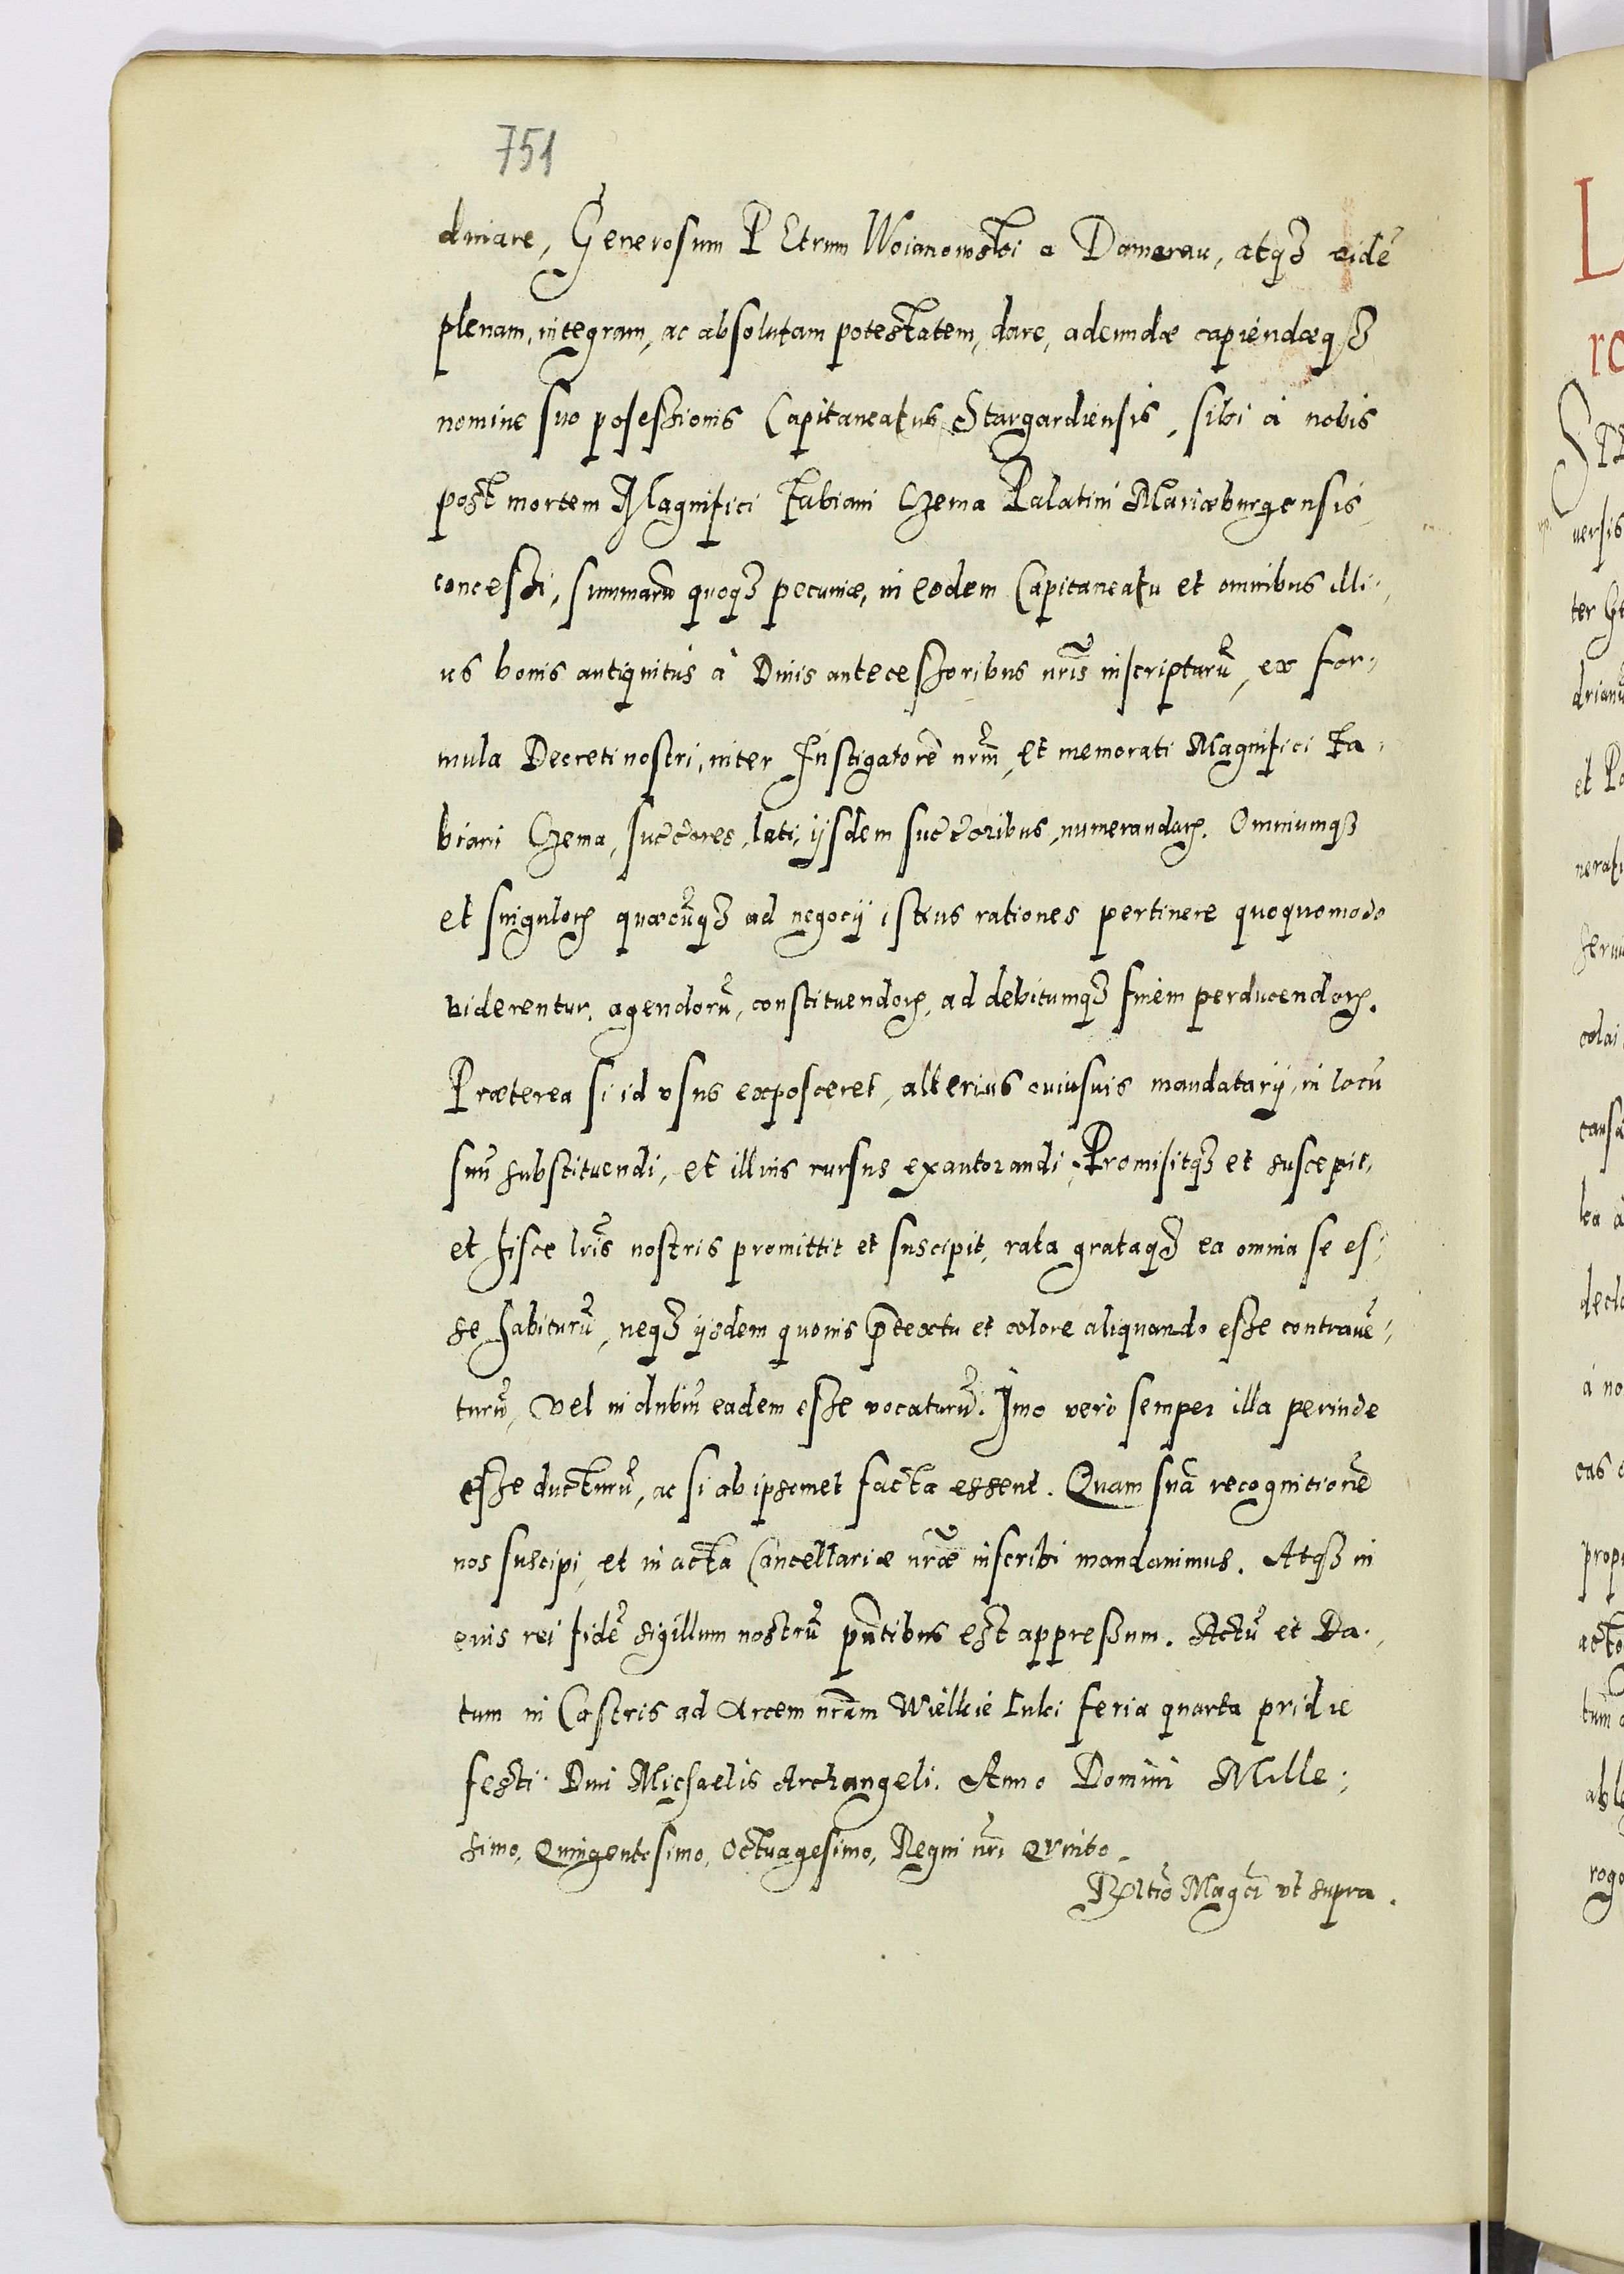 751
dinare, Generosum PEtrum Woianowski a Damerau, atqȝ eidē
plenam, integram, ac absolutam potestatem, dare, adeundæ capiendæqȝ
nomine suo posessionis Capitaneatus Stargardiensis, sibi à nobis
post mortem Magnifici Fabiani Czema Palatini Mariæburgensis
concessi, summarū quoqȝ pecuniæ, in eodem Capitaneatu et omnibus illi-
us bonis antiquitus à Divis antecessoribus nr̃is inscripturū, ex for-
mula Decreti nostri, inter Instigatorē nrm̃, et memorati Magnifici Fa-
biani Czema, succ̃ores, lati, ijsdem succ̃oribus, numerandaꝝ. Omniumqȝ
et singuloꝝ quæcūqȝ ad negocij istius rationes pertinere quoquomodo
viderentur, agendorū, constituendoꝝ, ad debitumqȝ finem perducendoꝝ.
Præterea si id vsus exposceret, alterius cuiusuis mandatarij, in locū
suū substituendi, et illius rursus exautorandi. Promisitqȝ et suscepit,
et hisce lr̃is nostris promittit et suscipit, rata grataqȝ ea omnia se es-
se habiturū, neqȝ ijsdem quouis p̃textu et colore aliquando esse contrauē-
turū, vel in dubiū eadem esse vocaturū. Imo verò semper illa perinde
esse ducturū, ac si ab ipsomet facta essent. Quam suā recognitionē
nos suscipi, et in acta Cancellariæ nr̃æ inscribi mandauimus. Atqȝ in
euis rei fidē sigillum nostrū pñtibus est appressum. Actū et Da-
tum in Castris ad Arcem nr̃am Wielkie Luki feria quarta pridie
festi Diui Michaelis Archangeli. Anno Domini Mille-
simo, Quingentesimo, Octuagesimo, Regni nr̃i Qvinto.
Rȩltio Magc̃i vt supra.